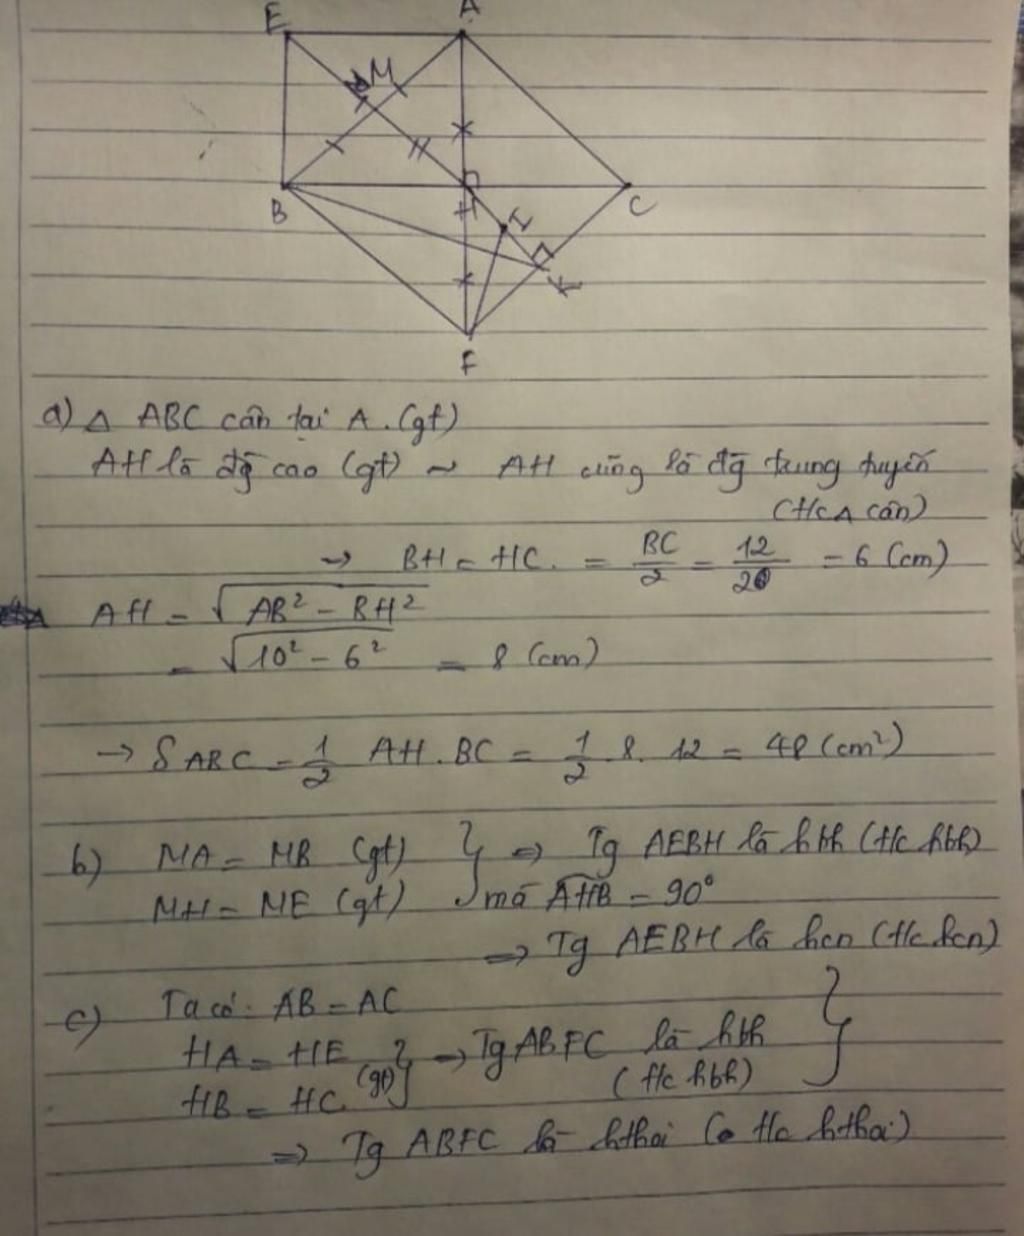 E A
M
B H C
I
K
F
a) Δ ABC cân tại A. (gt)
AH là đg̃ cao (gt) ~ AH cũng là đg̃ trung tuyến
(t/c Δ cân)
→ BH = HC. = BC/2 = 12/2 = 6 (cm)
AH = √(AB² - BH²)
= √(10² - 6²) = 8 (cm)
→ S ABC = 1/2 AH . BC = 1/2 . 8 . 12 = 48 (cm²)
b) MA = MB (gt) } ⇒ Tg AEBH là hbh (t/c hbh)
MH = ME (gt) mà AHB = 90°
⇒ Tg AEBH là hcn (t/c hcn)
c) Ta có: AB = AC
HA = HF } → Tg ABFC là hbh }
HB = HC (gt) (t/c hbh)
⇒ Tg ABFC là hthoi (t/c hthoi)